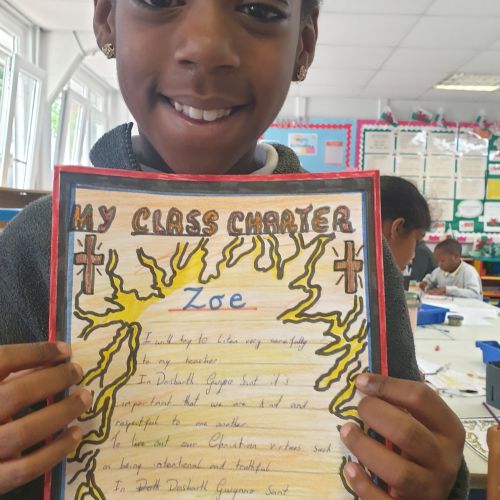 MY CLASS CHARTER
Zoe
I will try to listen very carefully
to my teacher
In Dosbarth Gwynne Saint it's
important that we are kind and
respectful to one another
To live out our Christian virtues such
as being intentional and truthful
In Dosbarth Gwynne Saint